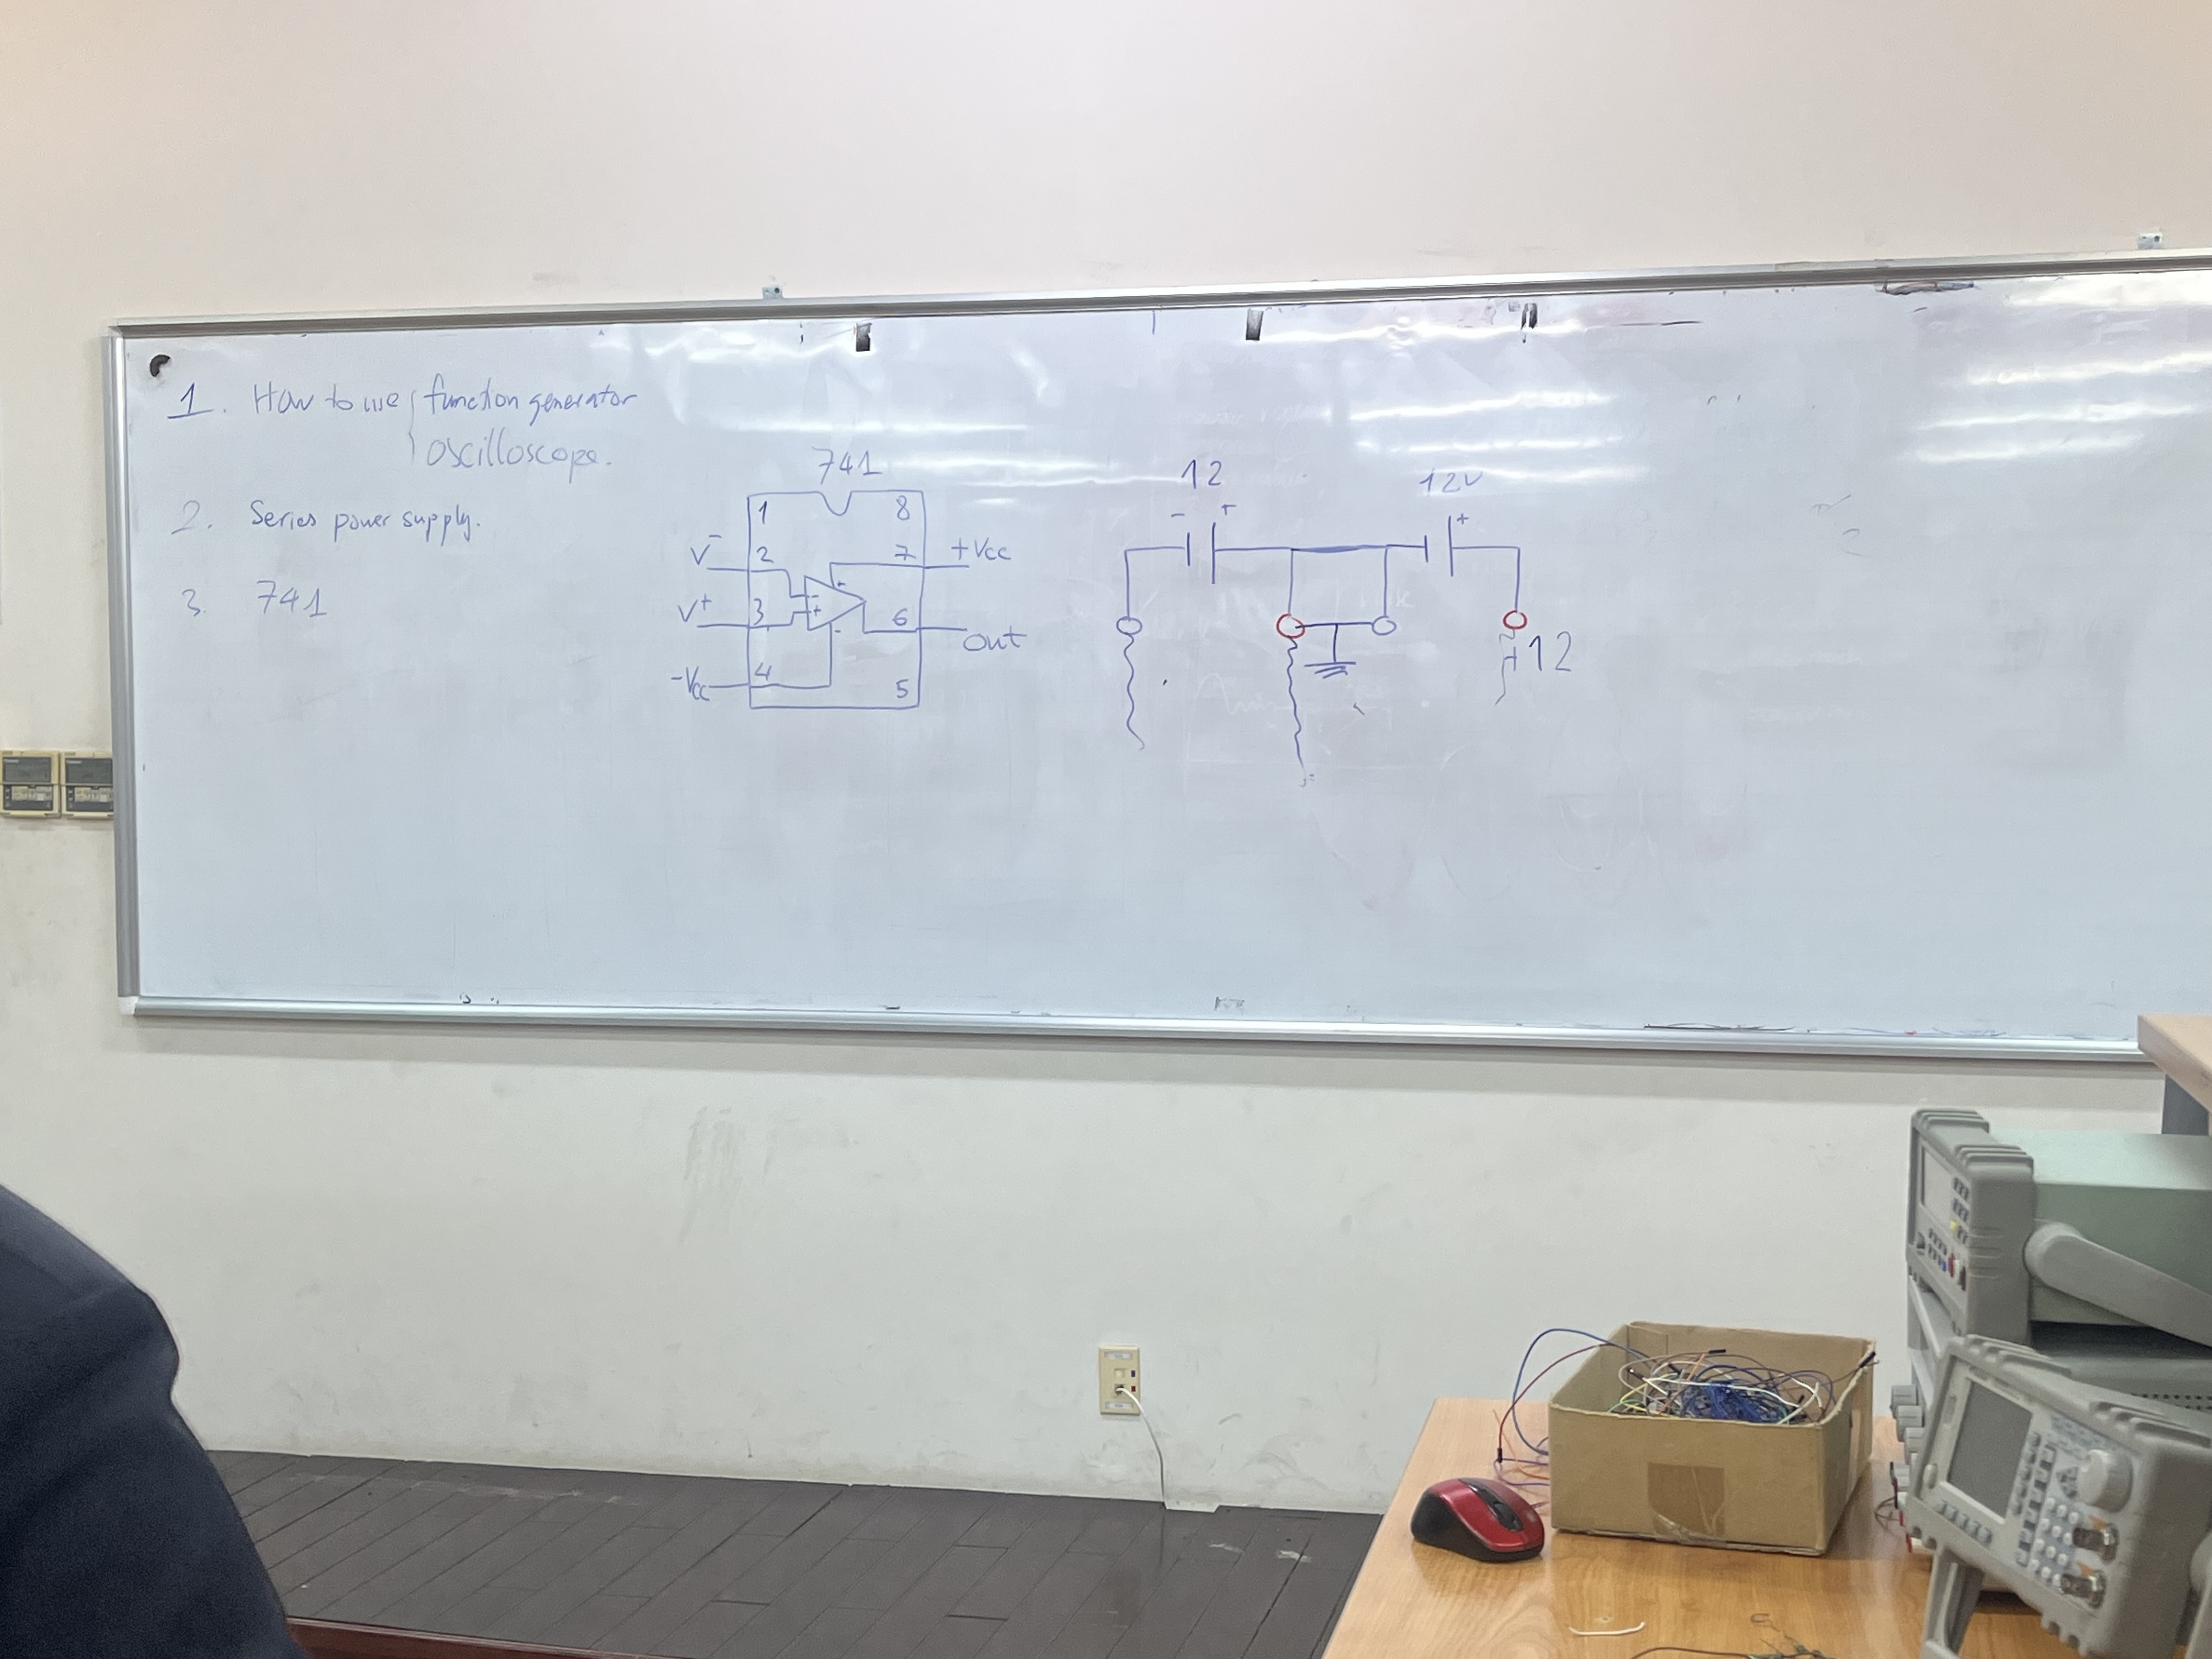 1. How to use { function generator
oscilloscope.
2. Series power supply.
3. 741
741
1 8
V⁻ 2 7 +Vcc
V⁺ 3 6 Out
-Vcc 4 5
- +
+
-
12 12V
- + +
+12